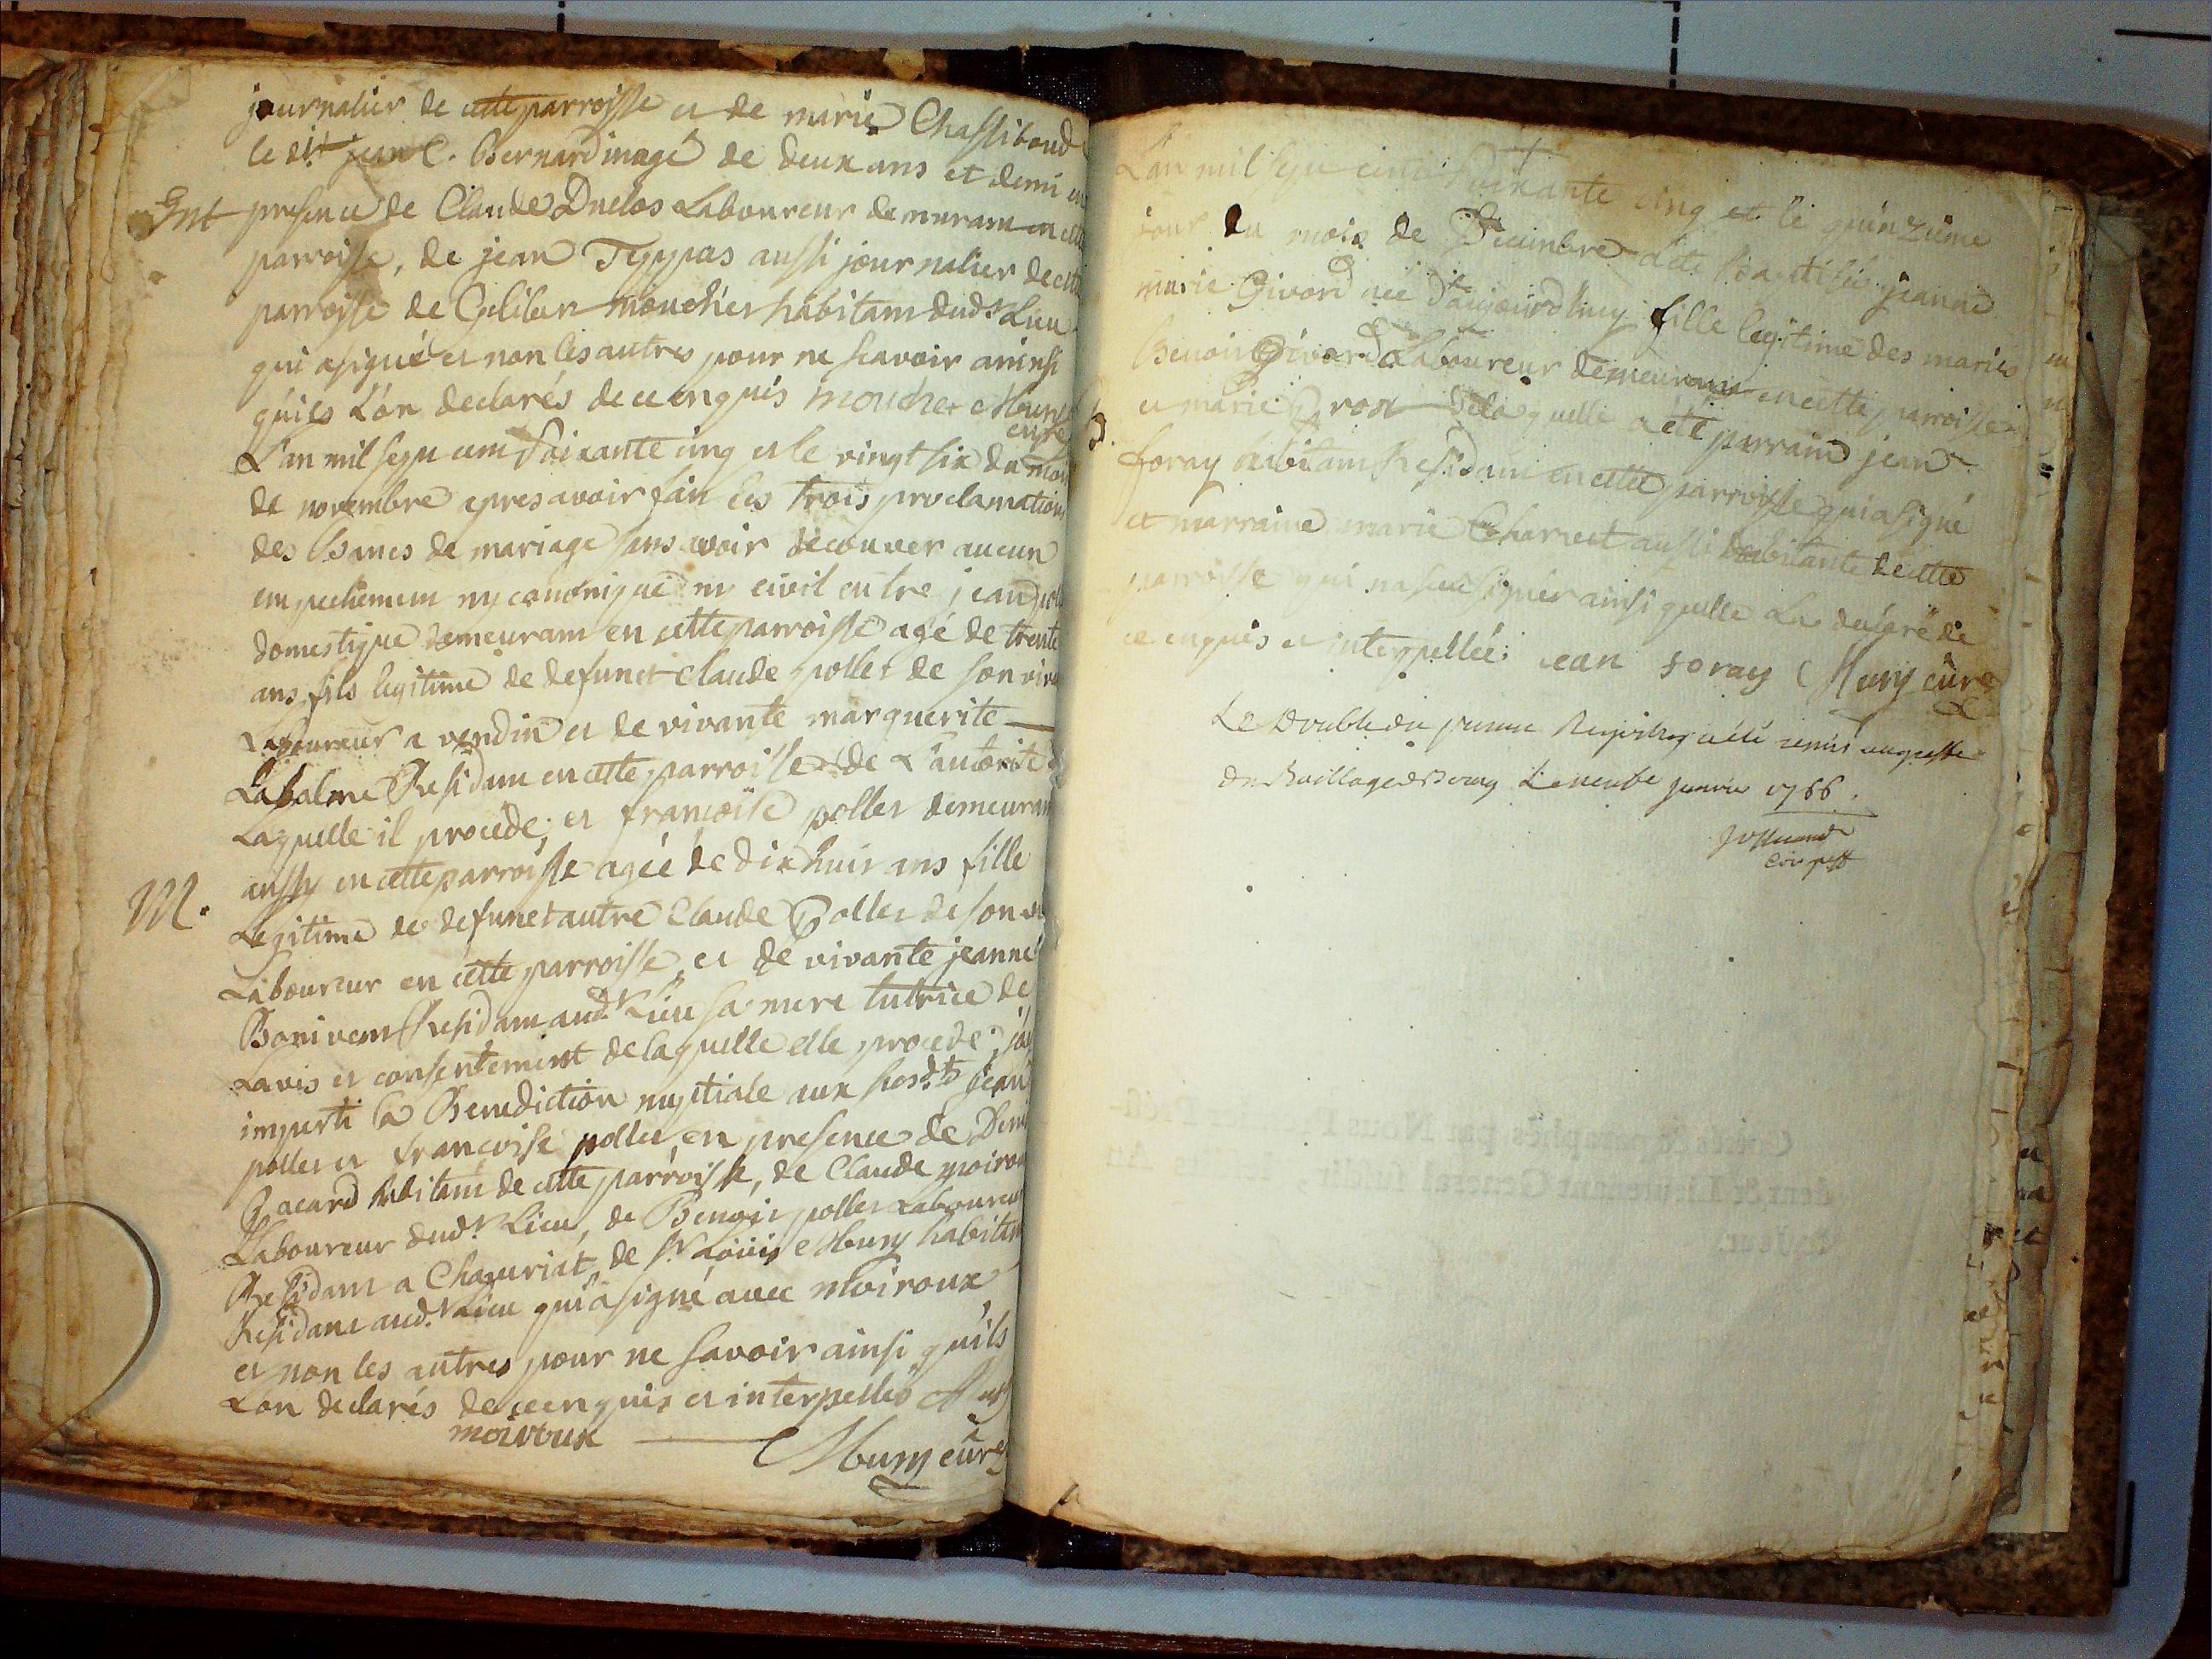 journalier de cette parroisse et de marie Chassiboud
le dit jean C. Bernardin agé de deux ans et demi en
Ent presence de Claude Duclos Laboureur demurant en cette
parroisse, de jean Teppas aussi journalier de cette
parroisse de moucher habitant dud.t Lieu
qui a signé et non les autres pour ne scavoir ainsi
qu'ils L'on declarés de ce enquis moucher
curé
L'an mil sept cent soixante cinq et le vingt six du mois
de novembre apres avoir fait les trois proclamations
des Bancs de mariage sans avoir decouver aucun
empechement ny canonique ny civil entre jean pollet
domestique demeurant en cette parroisse agé de trente
ans, fils legitime de defunct Claude pollet de son viva
Laboureur a vendin et de vivante marguerite
Labalme Residant en cette parroisse de L'autorite de
Laquelle il procede; et francoise pollet demeurant
aussy en cette parroisse agée de dix huit ans fille
M. Legitime de defunct autre Claude Pollet de son viv
Laboureur en cette parroisse, et de vivante jeanne
Bonivent Residant aud.t Lieu sa mere tutrice de
Lavis et consentement de laquelle elle procede; jay
imparti la Benediction nuptiale aux susd.ts jean
pollet et francoise pollet, en presence de Denis
Pacard habitant de cette parroisse, de Claude moiroux
Laboureur dud.t Lieu, de Benoit pollet Laboureur
Residant a Chaveriat, de s.r Louis habitant
Residant aud.t Lieu qui a signé avec Moiroux
et non les autres pour ne savoir ainsi qu'ils
L'on declarés de ce enquis et interpellés
moiroux curé
L'an mil sept cent soixante cinq et le quinzieme
jour du mois de Decembre a été Baptisée jeanne
marie Givord née d'aujourdhuy fille legitime des mariés
Benoit Givord Laboureur demeurant en cette parroisse
B. et marie Prost de laquelle a été parrain jean
foray habitant Residant en cette parroisse qui a signé
et marraine marie Charvet aussi habitante de cette
parroisse qui na sceu signer ainsi quelle La declaré de
ce enquis et interpellée; jean foray curé
Le Double du present Registre a été remis au greffe
du Baillage de Bourg Le neufe janvier 1766.